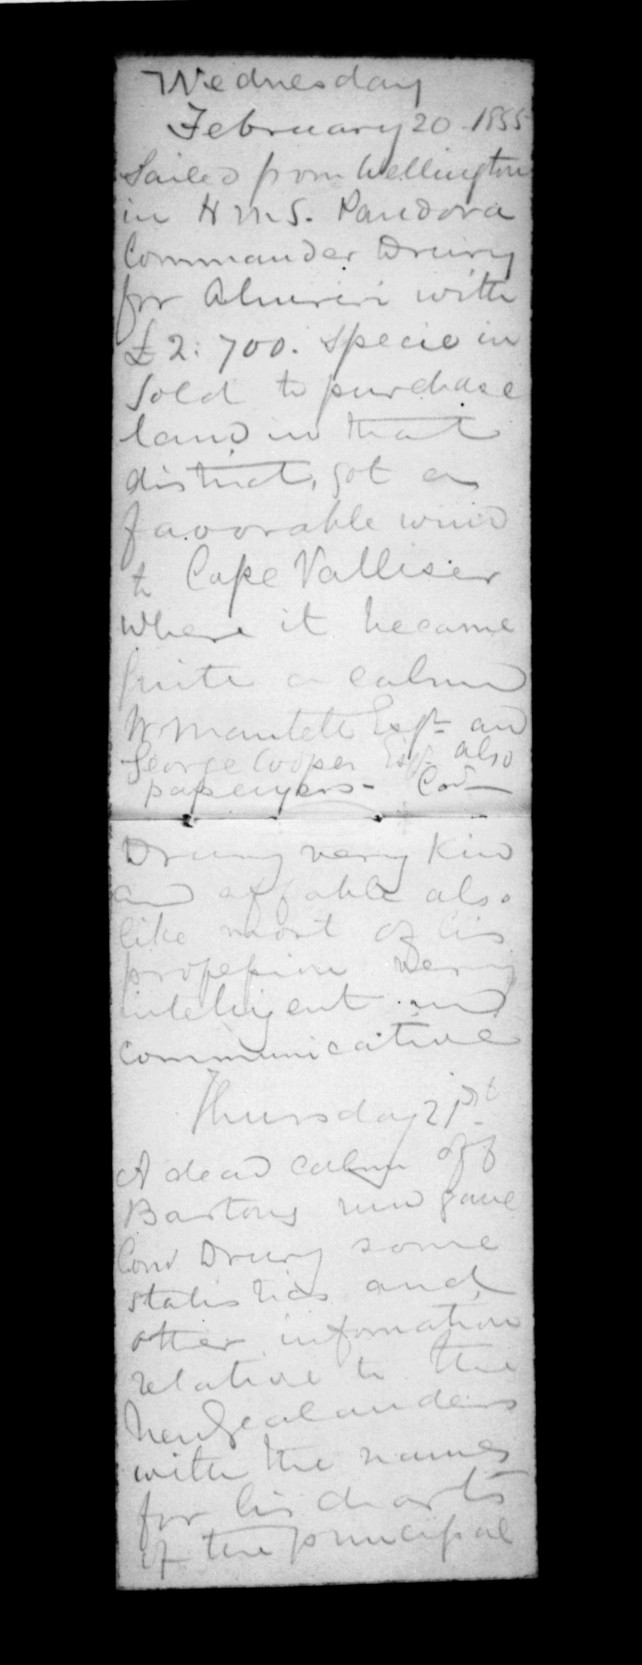 Wednesday
February 20 1855
Sailed from Wellington
in H M S. Pandora
Commander Drury
for Ahuriri with
£2:700. specie in
Gold to purchase
land in that
district, got a
favorable wind
to Cape Valliser
where it became
quite a calm
W Mantell Esqr and
George Cooper Esqr also
passengers - Com
Drury very kind
and affable also
like most of his
profession very
intelligent and
communicative
Thursday 21st
A dead calm off
Bartons run gave
Com Drury some
statistics and
other information
relative to the
New Zealanders
with the names
for his charts
of the principal